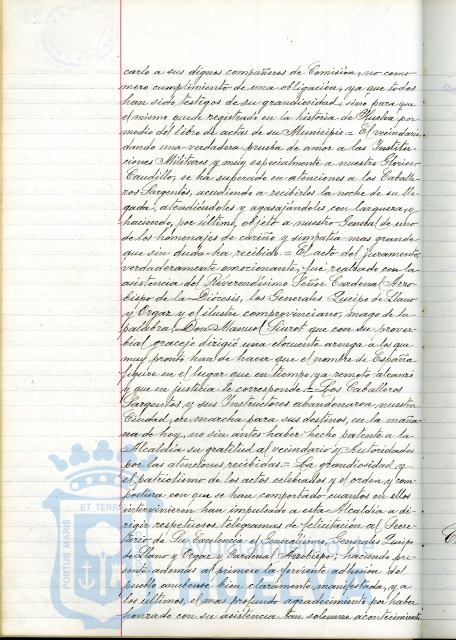 carlo a sus dignos compañeros de Comisión, no como
mero cumplimiento de una obligación, ya que todos
han sido testigos de su grandiosidad, sino para que
el mismo quede registrado en la historia de Huelva por
medio del libro de actas de su Municipio = El vecindario
dando una verdadera prueba de amor a las Institu-
ciones Militares y muy especialmente a nuestro Glorioso
Caudillo, se ha superado en atenciones a los Caballe-
ros Sargentos, acudiendo a recibirlos la noche de su lle-
gada, atendiéndoles y agasajándoles con larguera, y
haciendo, por último, objeto a nuestro General de uno
de los homenajes de cariño y simpatía mas grande
que sin duda ha recibido = El acto del juramento,
verdaderamente emocionante, fue realzado con la
asistencia del Reverendísimo Señor Cardenal Arzo-
bispo de la Diócesis, los Generales Queipo de Llano
y Orgaz y el ilustre comprovinciano, mago de la
palabra, Don Manuel Siurot que con su prover-
bial gracejo dirigió una elocuente arenga a los que
muy pronto han de hacer que el nombre de España
figure en el lugar que en tiempo ya remoto alcanzó
y que en justicia le corresponde = Los Caballeros
Sargentos y sus Instructores abandonaron nuestra
Ciudad, en marcha para sus destinos, en la maña-
na de hoy, no sin antes haber hecho patente a la
Alcaldía su gratitud al vecindario y Autoridades
por las atenciones recibidas = La grandiosidad y
el patriotismo de los actos celebrados y el orden y com-
postura con que se han comportado cuantos en ellos
intervinieron han impulsado a esta Alcaldía a di-
rigir respetuosos telegramas de felicitación al Secre-
tario de Su Excelencia el Generalísimo, Generales Queipo
de Llano y Orgaz y Cardenal Arzobispo; haciendo pre-
sente además al primero la ferviente adhesión del
pueblo onubense bien claramente manifestada, y a
los últimos, el mas profundo agradecimiento por haber
honrado con su asistencia tan solemne acontecimiento
PORTUS MARIS
ET TERR
HUELVA